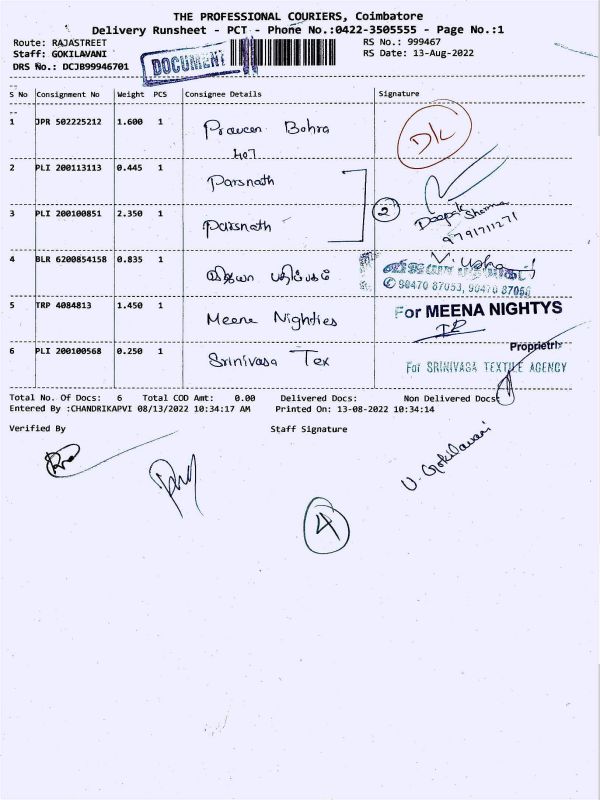 THE PROFESSIONAL COURIERS, Coimbatore
Delivery Runsheet - PCT - Phone No.:0422-3505555 - Page No.:1
Route: RAJASTREET RS No.: 999467
Staff: GOKILAVANI RS Date: 13-Aug-2022
DRS No.: DCJB99946701
DOCUMENT
S No Consignment No Weight PCS Consignee Details Signature
1 JPR 502225212 1.600 1 Praveen Bohra D/L
407
2 PLI 200113113 0.445 1 Parsnath
2 Deepak Sharma
9791711271
3 PLI 200100851 2.350 1 Parsnath
4 BLR 6200854158 0.835 1 விஜயா பதிப்பகம் V. Usha
விஜயா பதிப்பகம்
✆ 90470 87053, 90470 87058
5 TRP 4084813 1.450 1 Meena Nighties For MEENA NIGHTYS
Proprietrix
6 PLI 200100568 0.250 1 Srinivasa Tex For SRINIVASA TEXTILE AGENCY
Total No. Of Docs: 6 Total COD Amt: 0.00 Delivered Docs: Non Delivered Docs:
Entered By :CHANDRIKAPVI 08/13/2022 10:34:17 AM Printed On: 13-08-2022 10:34:14
Verified By Staff Signature
U. Gokilavani
4